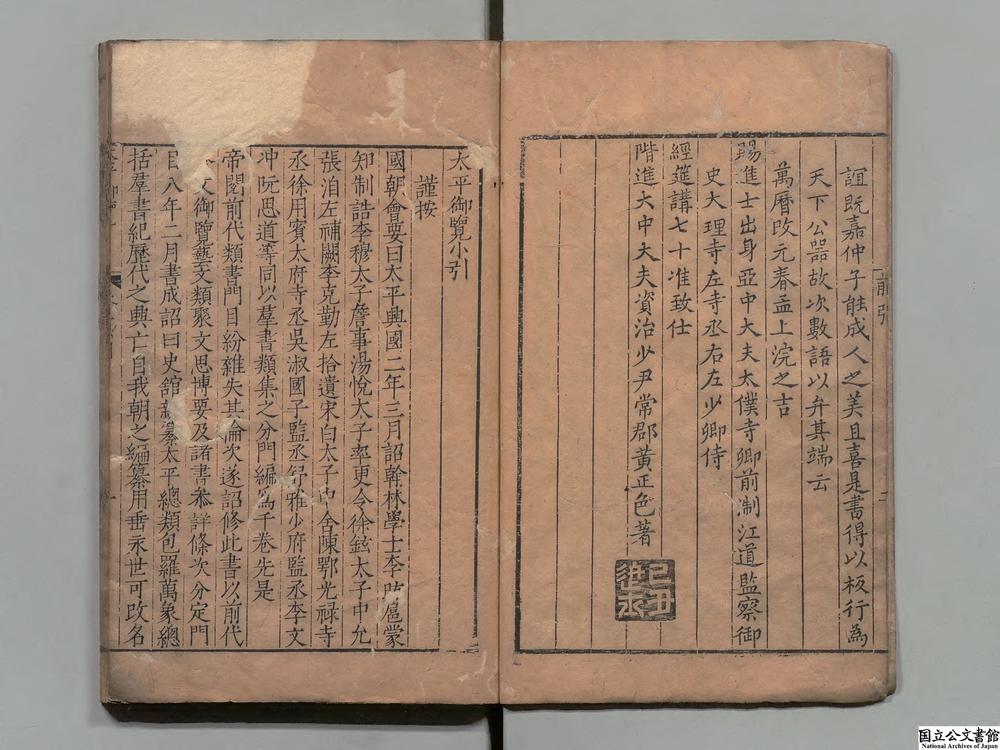 誼既嘉仲子能成人之美且喜是書得以板行為
天下公器故次數語以弁其端云
萬曆改元春孟上浣之吉
賜進士出身亞中大夫太僕寺卿前淛江道監察御
史大理寺左寺丞右左少卿侍
經筵講七十准致仕
階進大中大夫資治少尹常郡黃正色著
前引
二
太平御覽小引
謹按
國朝會要曰太平興國二年三月詔翰林學士李昉扈蒙
知制誥李穆太子詹事湯悅太子率更令徐鉉太子中允
張洎左補闕李克勤左拾遺宋白太子中舍陳鄂光祿寺
丞徐用賓太府寺丞吳淑國子監丞舒雅少府監丞李文
冲阮思道等同以羣書類集之分門編為千卷先是
帝閱前代類書門目紛雜失其倫次遂詔修此書以前代
文御覽藝文類聚文思博要及諸書叅詳條次分定門
目八年二月書成詔曰史舘新纂太平總類包羅萬象總
括羣書紀歷代之興亡自我朝之編纂用垂永世可改名
国立公文書館
National Archives of Japan